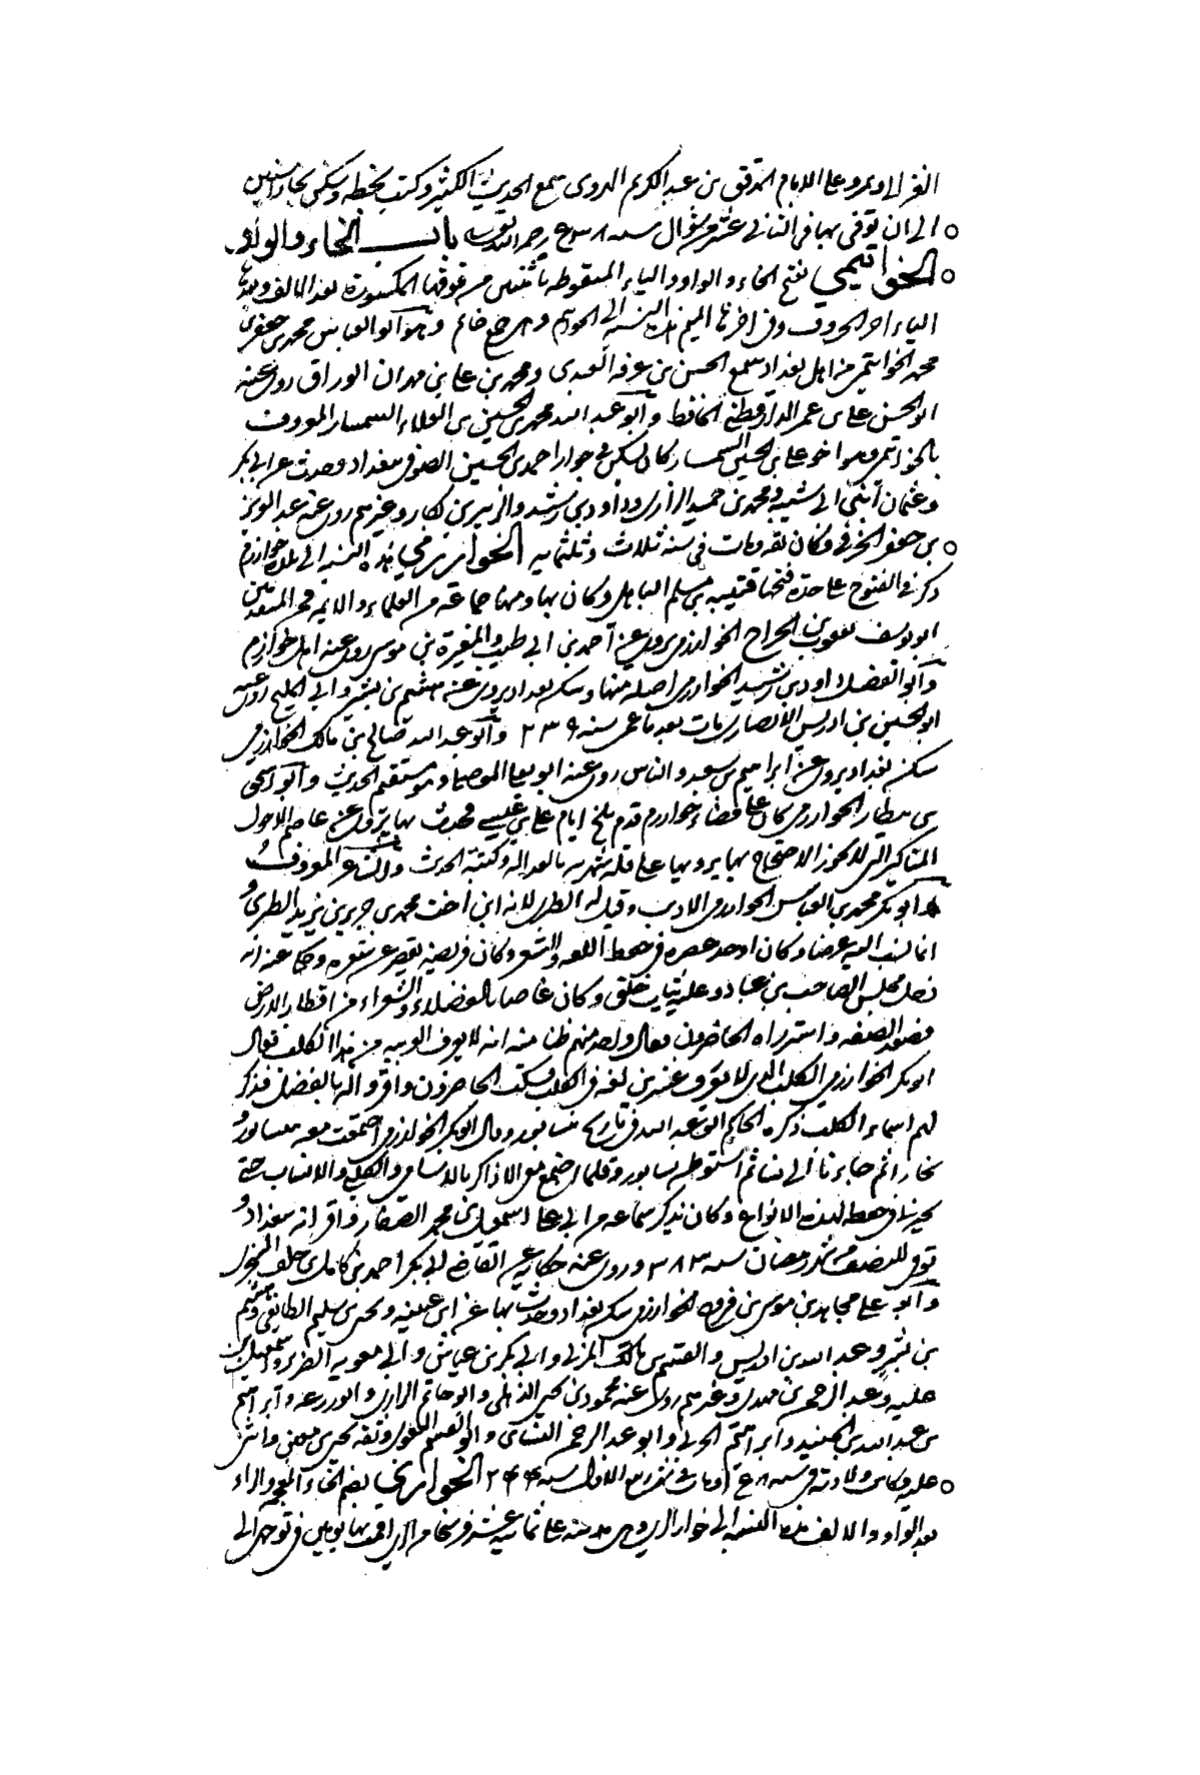 الغزالا وبمرو على الامام الموفق بن عبد الكريم الهروى سمع الحديث الكثير وكتب بخطه وسكن بخارا سنين
الى ان توفى بها فى الثانى عشر من شوال سنه ٥٣٨ رحمه الله باب الخاء والواو
الخواتيمي بفتح الخاء والواو والتاء المنقوطه باثنتين من فوقها المكسورة بعد الالف وبعدها
الياء اخر الحروف وفى اخرها الميم هذه النسبه الى الخواتيم وهى جمع خاتم وهو ابو العباس محمد بن جعفر بن
محمد الخواتيمى من اهل بغداد سمع الحسن بن عرفه العبدى ومحمد بن على بن مهران الوراق روى عنه
ابو الحسن على بن عمر الدارقطنى الحافظ وابو عبد الله محمد بن الحسين بن العلاء السمسار المعروف
بالخواتيمى وهو اخو على بن الحسين السمسار كان يسكن فى جوار احمد بن الحسين الصوفى ببغداد وحدث عن ابى بكر
وعثمان ابنى ابى شيبه ومحمد بن حميد الرازى وداود بن رشيد والزبير بن بكار وغيرهم روى عنه عبد العزيز
بن جعفر الخرقى وكان ثقه ومات فى سنه ثلاث وثلثمايه الخوارزمي هذه النسبه الى بلده خوارزم
ذكر فى الفتوح على حدة فتحها قتيبه بن مسلم الباهلى وكان بها ومنها جماعه من العلماء والائمه فمن المتقدمين
ابو يوسف يعقوب بن الجراح الخوارزمى يروى عن احمد بن ابى طيبه والمغيرة بن موسى روى عنه اهل خوارزم
وابو الفضل داود بن رشيد الخوارزمى اصله منها وسكن بغداد يروى عنه هشيم بن بشير وابى المليح روى عنه
ابو الحسين بن ادريس الانصارى مات بعد ما عمى سنه ٢٣٩ وابو عبد الله صالح بن مالك الخوارزمى
سكن بغداد يروى عن ابراهيم بن سعد والناس روى عنه ابو يعلى الموصلى وهو مستقيم الحديث وابو اسحق
بن بيطار الخوارزمى كان على قضاء خوارزم قدم بلخ ايام على بن عيسى فحدث بها يروى عن عاصم الاحول
المناكير التى لا يجوز الاحتجاج بها يرويها على قلة شهرته بالعدالة وكتبه الحديث والشاعر المعروف
ابو بكر محمد بن العباس الخوارزمى الاديب وقيل له الطبرى لانه ابن اخت محمد بن جرير بن يزيد الطبرى
انما نسب اليه عرضا وكان اوحد عصره فى حفظ اللغه والشعر وكان فى نصبه يقصر عن شعره وحكى عنه انه
دخل مجلس الصاحب بن عباد وعليه ثياب خلق وكان غاصا بالفضلاء والشعراء من اقطار الارض
فصعد الصفه واستزراه الحاضرون فقال واحد منهم ظنا منه انه لا يعرف العربيه من هذا الكلب فقال
ابو بكر الخوارزمى الكلب الذى لا يعرف عشرين لغه فى الكلب فسكت الحاضرون واقروا له بالفضل فذكر
لهم اسماء الكلب ذكره الحاكم ابو عبد الله فى تاريخ نيسابور وقال ابو بكر الخوارزمى اجتمعت معه بنيسابور
بخارا ثم جاءنا الى نسا ثم استوطن نيسابور وقلما اجتمع معى الا ذاكر بالاسامى والكنى والانساب حتى
يحيرنى فى حفظه لهذه الانواع وكان يذكر سماعه من ابى على اسمعيل بن محمد الصفار واقرانه ببغداد
توفى للنصف من شهر رمضان سنه ٣٨٣ وروى عنه حكايه عن القاضى ابى بكر احمد بن كامل بن خلف الشجرى
وابو على مجاهد بن موسى بن فروخ الخوارزمى سكن بغداد وحدث بها عن ابن عيينه ويحيى بن سليم الطايفى وهشيم
بن بشير وعبد الله بن ادريس والقسم بن مالك المزنى وابى بكر بن عياش وابى معويه الضرير واسمعيل بن
عليه وعبد الرحمن بن مهدى وغيرهم روى عنه محمد بن يحيى الذهلى وابو حاتم الرازى وابو زرعه وابراهيم
بن عبد الله بن الجنيد وابراهيم الحربى وابو عبد الرحمن النسائى وابو القسم البغوى وثقه يحيى بن معين واثنى
عليه وكانت ولادته فى سنه ومات فى شهر ربيع الاول سنه ٢٤٤ الخواري بضم الخاء المعجمه والراء
بعد الواو والالف هذه النسبه الى خوار الرى وهى مدينه على ثمانيه عشر فرسخا من الرى اقمت بها يومين فى توجهى الى